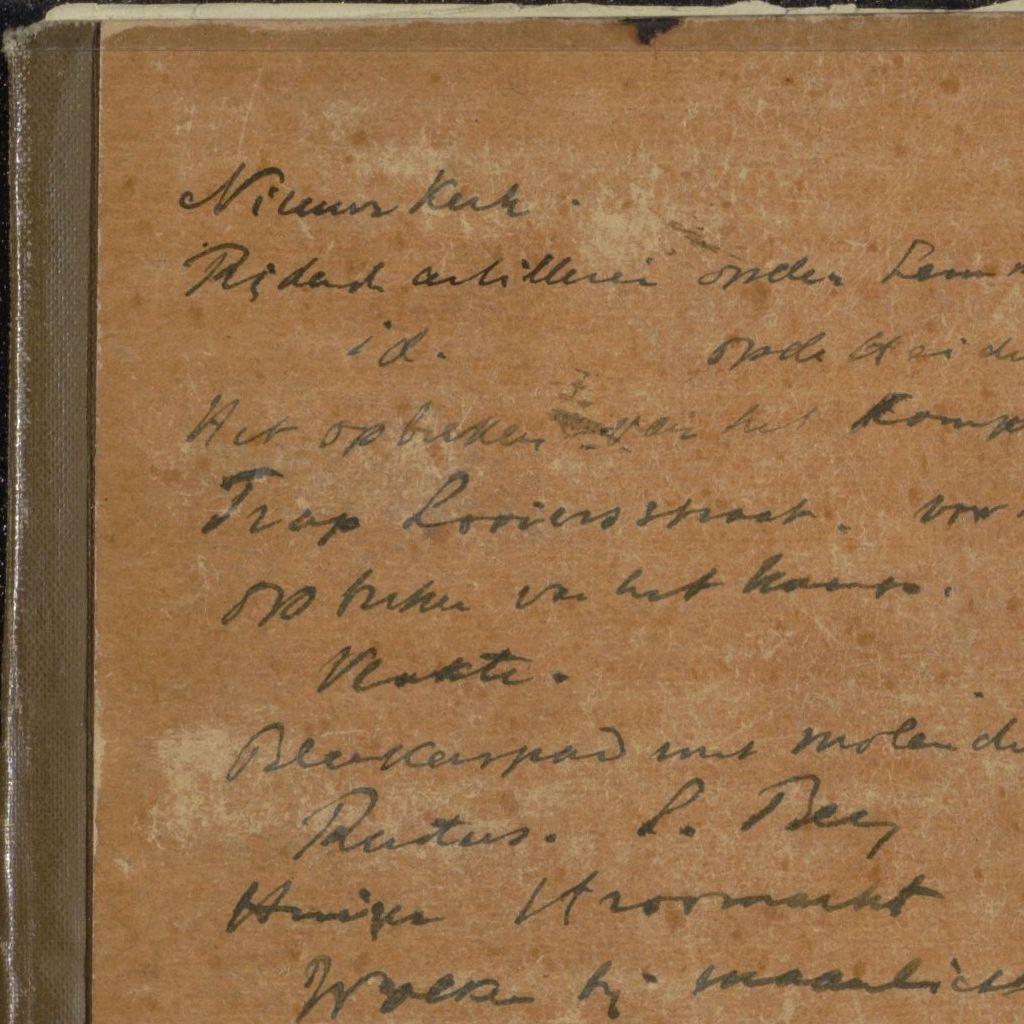 Nieuwe Kerk.
Rijdend artillerie op den
id. op de Heide
Het opbreken van het Kamp
Trap Looiersstraat. voor
opbreken van het kamp.
Vlakte.
Bleekerspad met molen de
L. Berg
Huisjes Stroomarkt
Wolken bij maanlicht